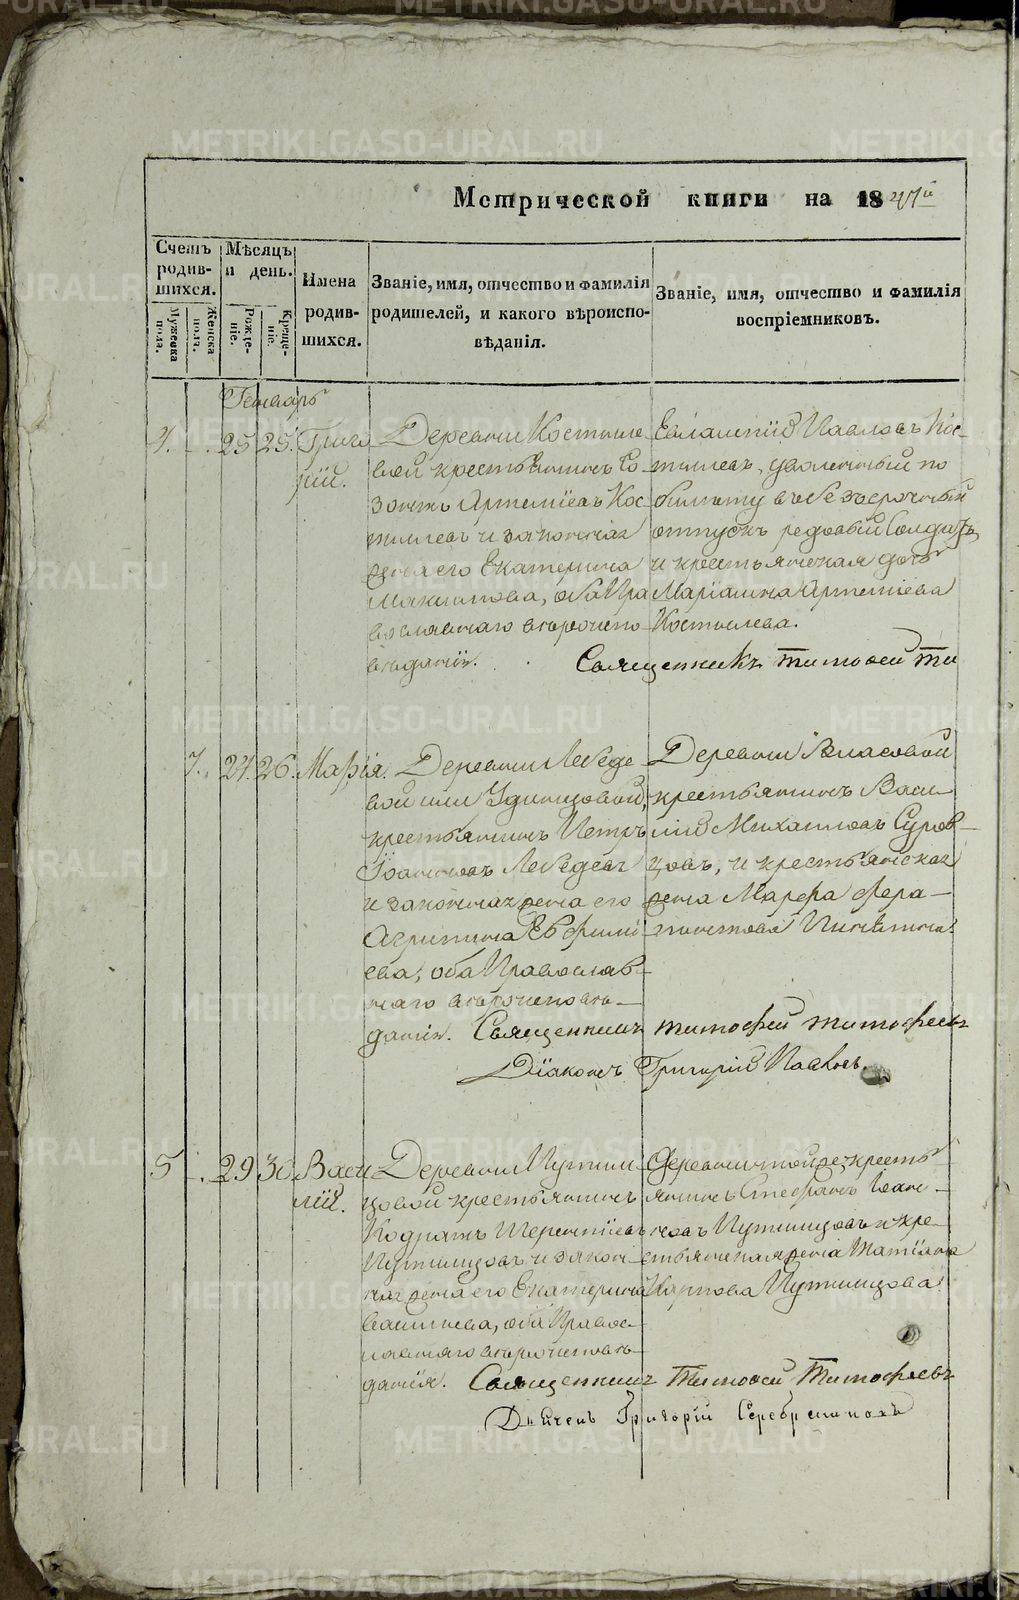 Метрической книги на 1847й
Счетъ родившихся.
Мужеска пола.
Женска пола.
Мѣсяцъ и день.
Рожденіе.
Крещеніе.
Имена родившихся.
Званіе, имя, отчество и фамилія родителей, и какого вѣроисповѣданія.
Званіе, имя, отчество и фамилія воспріемниковъ.
Генварь
4. 25 25. Григо
рій.
Деревни Костыле
вой крестьянинъ Со
зонтъ Артеміевъ Кос
тылевъ и законная
жена его Екатерина
Максимова, оба Пра
вославнаго вѣроиспо
вѣданія.
Евлампій Павловъ Кос-
тылевъ, уволенный по
билету въ безсрочный
отпускъ рядовый Солдатъ,
и крестьянская дочь
Маріамна Артеміева
Костылева.
Священникъ Тимофей Ти
7. 24. 26. Марія.
Деревни Лебеде
вой или Удинцовой,
крестьянинъ Петръ
Іоанновъ Лебедевъ
и законная жена его
Агрипина Евфими
ева, оба Православ-
наго вѣроисповѣ-
данія.
Деревни Власовой
крестьянинъ Васи-
лій Михайловъ Суров-
цовъ, и крестьянская
жена Марфа Фера-
понтова
Священникъ Тимофей Тимофеевъ
Діаконъ Григорій Павлов.
5 29 30 Васи
лій.
Деревни Путми
цовой крестьянинъ
Кодратъ Терентіевъ
Путимцовъ и закон
ная жена его Екатерина
Васильева, оба Правос-
лавнаго вѣроисповѣ-
данія.
Деревни тойже кресть
янинъ Стефанъ Іоан-
новъ Путимцовъ и кре-
стьянская жена Татіана
Карпова Путимцова
Священникъ Тимофей Тимофеевъ
Дьячекъ Григорій Серебрениковъ
METRIKI.GASO-URAL.RU